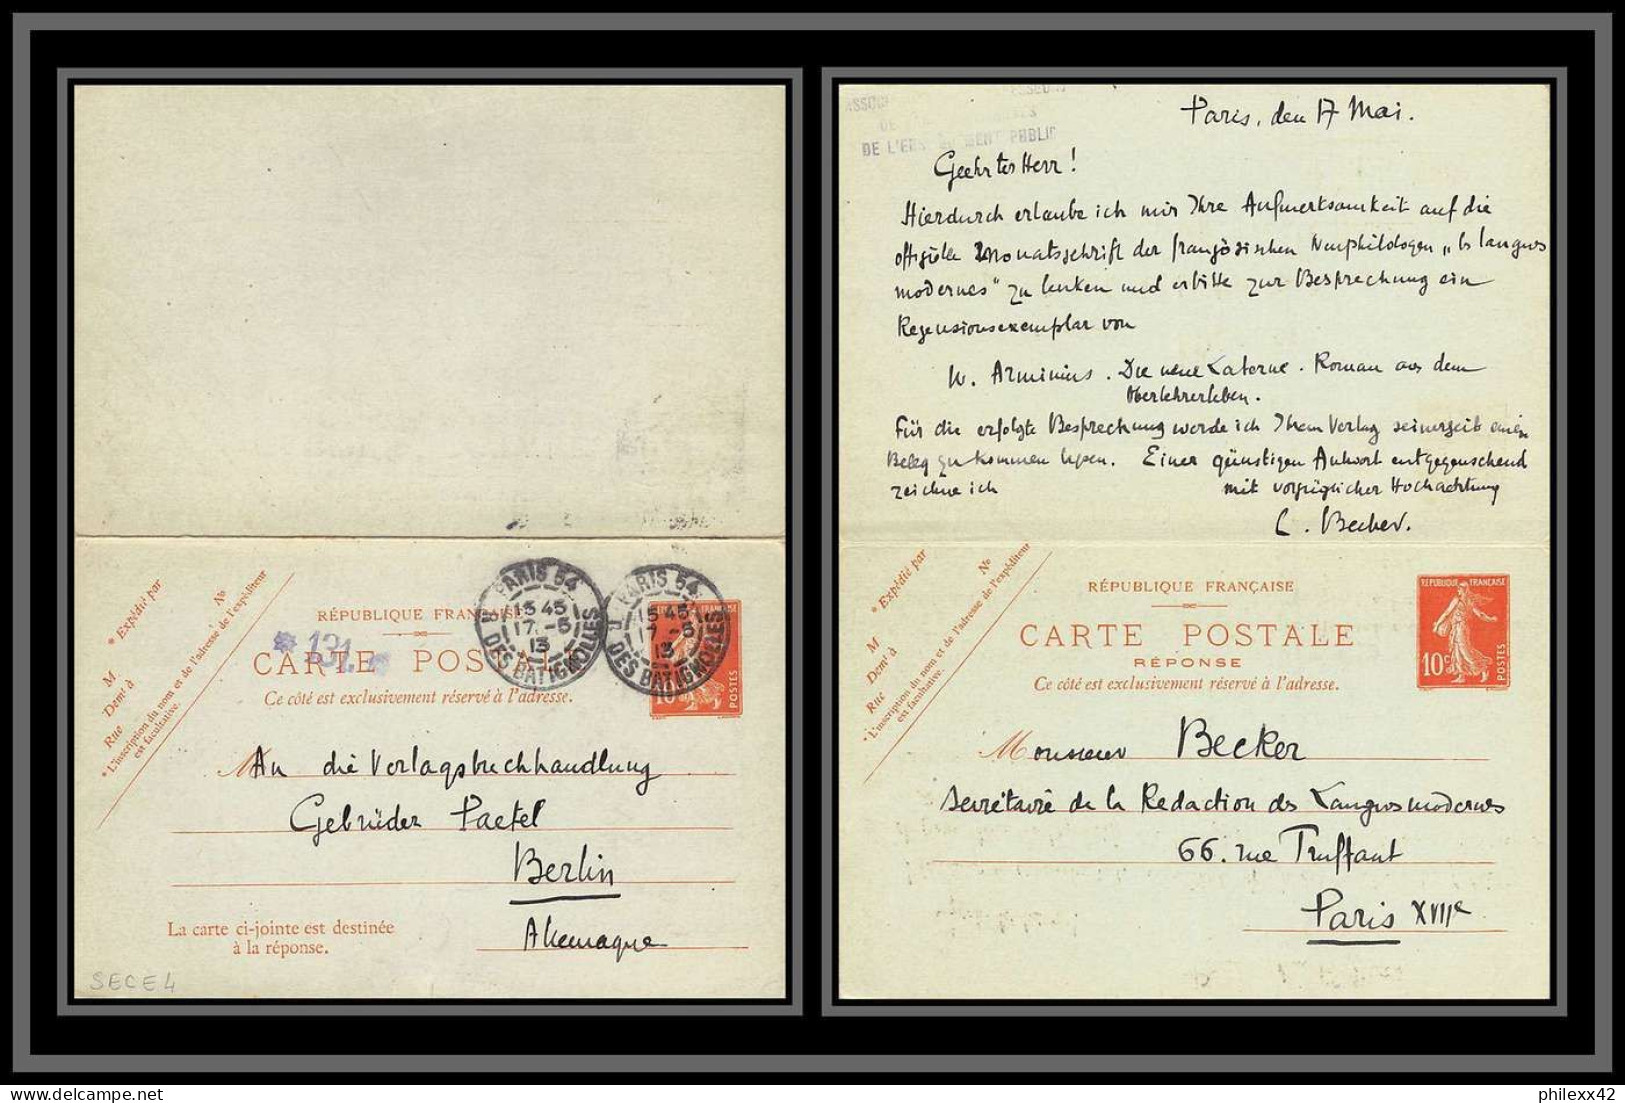 RÉPUBLIQUE FRANÇAISE
CARTE POSTALE
Ce côté est exclusivement réservé à l'adresse.
* Expédié par
M
Demt à
Rue
No
* L'inscription du nom et de l'adresse de l'expéditeur
est facultative.
* 131
PARIS 54
15 45
17 - 5
13
R. DES BATIGNOLLES
PARIS 54
15 45
17 - 5
13
R. DES BATIGNOLLES
10c
POSTES
An die Verlagsbuchhandlung
Gebrüder Paetel
Berlin
Allemagne
La carte ci-jointe est destinée
à la réponse.
SECE4
DE L'ENSEIGNEMENT PUBLIC
Paris, den 17 Mai.
Geehrter Herr!
Hierdurch erlaube ich mir Ihre Aufmerksamkeit auf die
offizielle Monatsschrift der französischen Neuphilologen „les langues
modernes" zu lenken und erbitte zur Besprechung ein
Rezensionsexemplar von
W. Arminius. Die neue Laterne. Roman aus dem
Oberlehrerleben.
Für die erfolgte Besprechung werde ich Ihrem Verlag seinerzeit einen
Beleg zukommen lassen. Einer günstigen Antwort entgegensehend
zeichne ich mit vorzüglicher Hochachtung
C. Becker.
* Expédié par
M
Demt à
Rue
No
* L'inscription du nom et de l'adresse de l'expéditeur
est facultative.
RÉPUBLIQUE FRANÇAISE
CARTE POSTALE
RÉPONSE
Ce côté est exclusivement réservé à l'adresse.
RÉPUBLIQUE FRANÇAISE
10c
POSTES
Monsieur Becker
Secrétaire de la Rédaction des Langues modernes
66. rue Truffaut
Paris XVIIe
philexx42